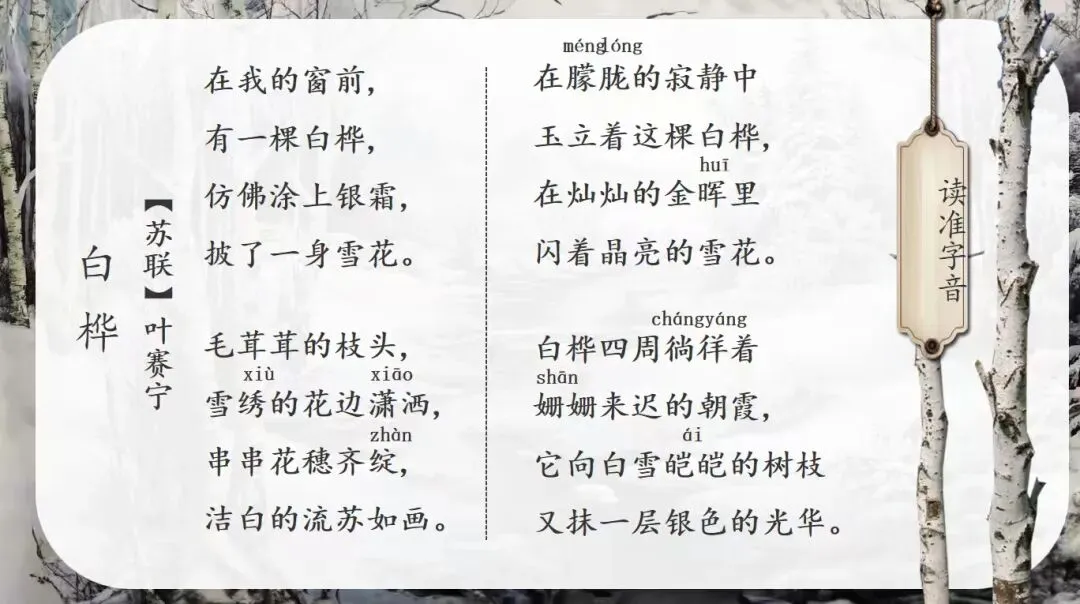 白桦
【苏联】叶赛宁
在我的窗前，
有一棵白桦，
仿佛涂上银霜，
披了一身雪花。
毛茸茸的枝头，
xiù xiāo
雪绣的花边潇洒，
zhàn
串串花穗齐绽，
洁白的流苏如画。
ménglóng
在朦胧的寂静中
玉立着这棵白桦，
huī
在灿灿的金晖里
闪着晶亮的雪花。
chángyáng
白桦四周徜徉着
shān
姗姗来迟的朝霞，
ái
它向白雪皑皑的树枝
又抹一层银色的光华。
读准字音